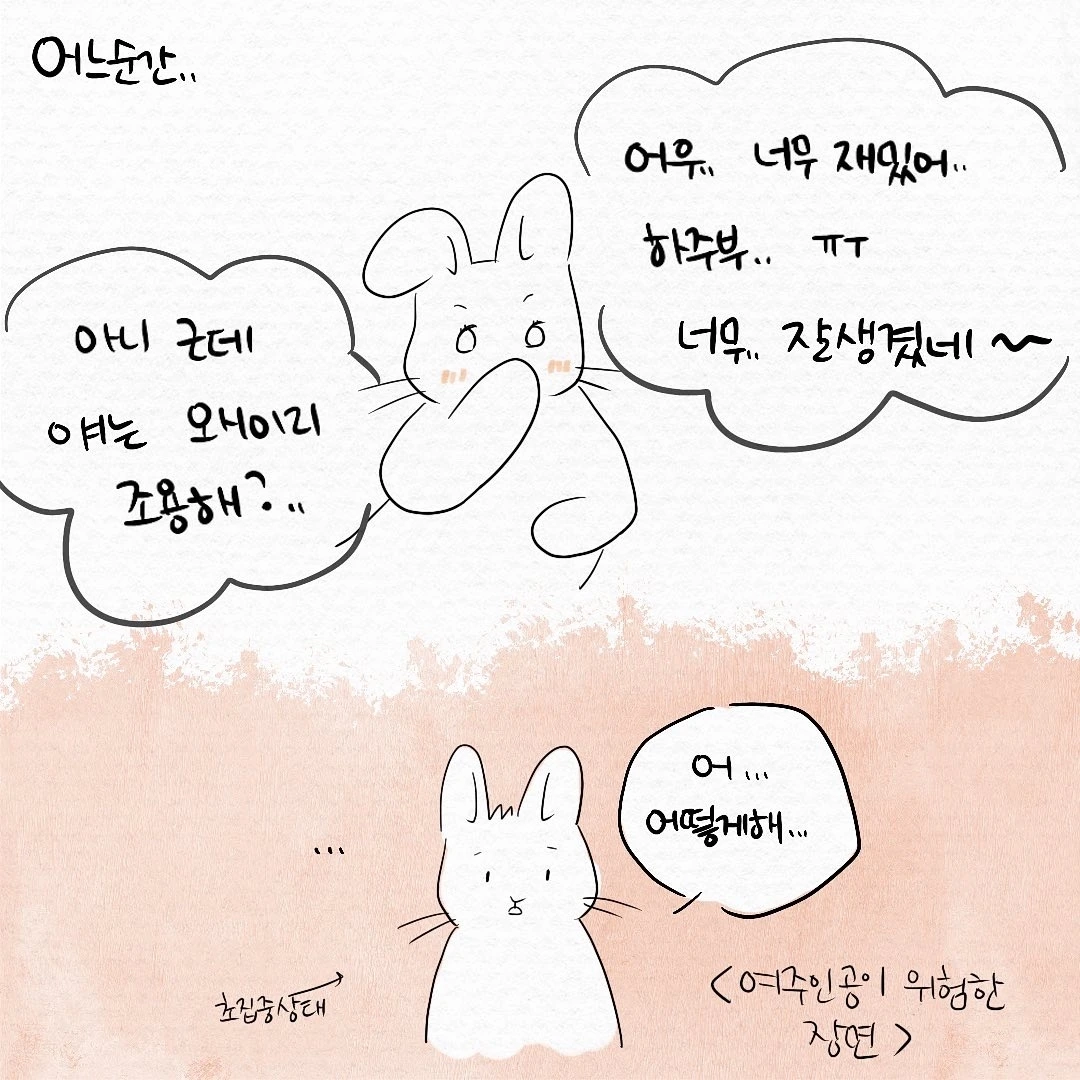 어느순간..
어우.. 너무 재밌어..
하주부.. ㅠㅜ
너무.. 잘생겼네~
아니 근데
얘는 오ㅐ이리
조용해?..
어...
어떻게해...
...
초집중상태
<여주인공이 위험한
장면>